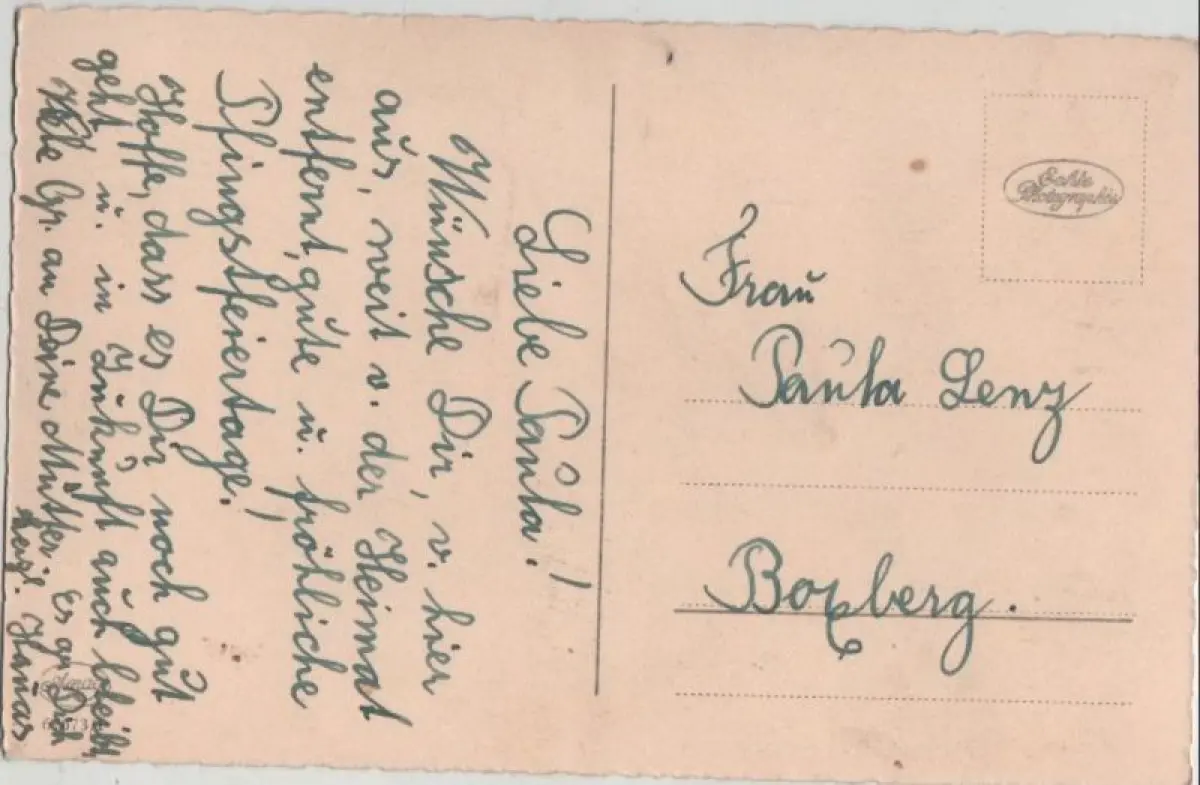 Liebe Paula!
Wünsche Dir, v. hier
aus, weit v. der Heimat
entfernt, gute u. fröhliche
Pfingstfeiertage!
Hoffe, dass es Dir noch gut
geht u. in Zukunft auch bleibt.
Viele Gr. an Deine Mutter. Es gr. Dich
herzl. Hannas
Echte
Photographie
Frau
Paula Lenz
Boxberg.